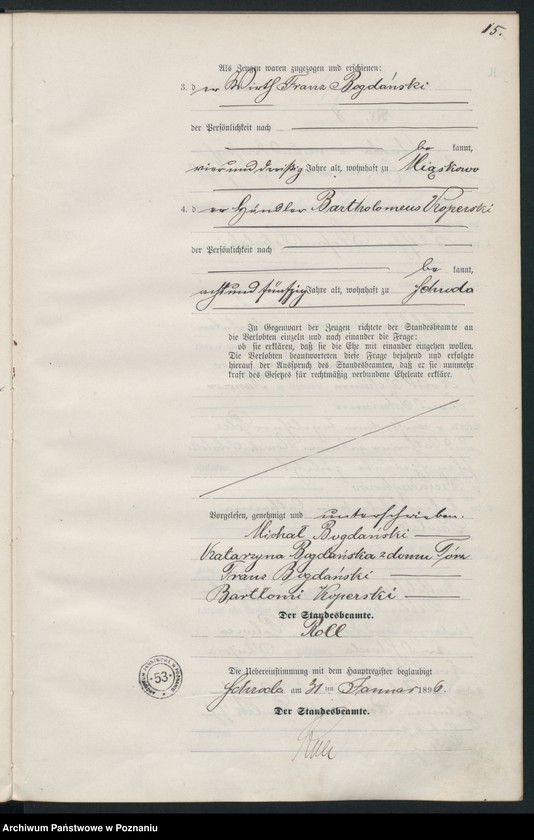 15.
Als Zeugen waren zugezogen und erschienen:
3. der Wirth Franz Bogdański
der Persönlichkeit nach
be kannt,
vierunddreißig Jahre alt, wohnhaft zu Miąskowo
4. der Händler Bartholomeus Koperski
der Persönlichkeit nach
be kannt,
achtundfünfzig Jahre alt, wohnhaft zu Schroda
In Gegenwart der Zeugen richtete der Standesbeamte an
die Verlobten einzeln und nach einander die Frage:
ob sie erklären, daß sie die Ehe mit einander eingehen wollen.
Die Verlobten beantworteten diese Frage bejahend und erfolgte
hierauf der Ausspruch des Standesbeamten, daß er sie nunmehr
kraft des Gesetzes für rechtmäßig verbundene Eheleute erkläre.
Vorgelesen, genehmigt und unterschrieben.
Michał Bogdański
Katarzyna Bogdańska z domu
Franz Bogdański
Bartłomi Koperski
Der Standesbeamte.
Roll
Die Uebereinstimmung mit dem Hauptregister beglaubigt
Schroda am 31 ten Januar 1896.
Der Standesbeamte.
53
Archiwum Państwowe w Poznaniu